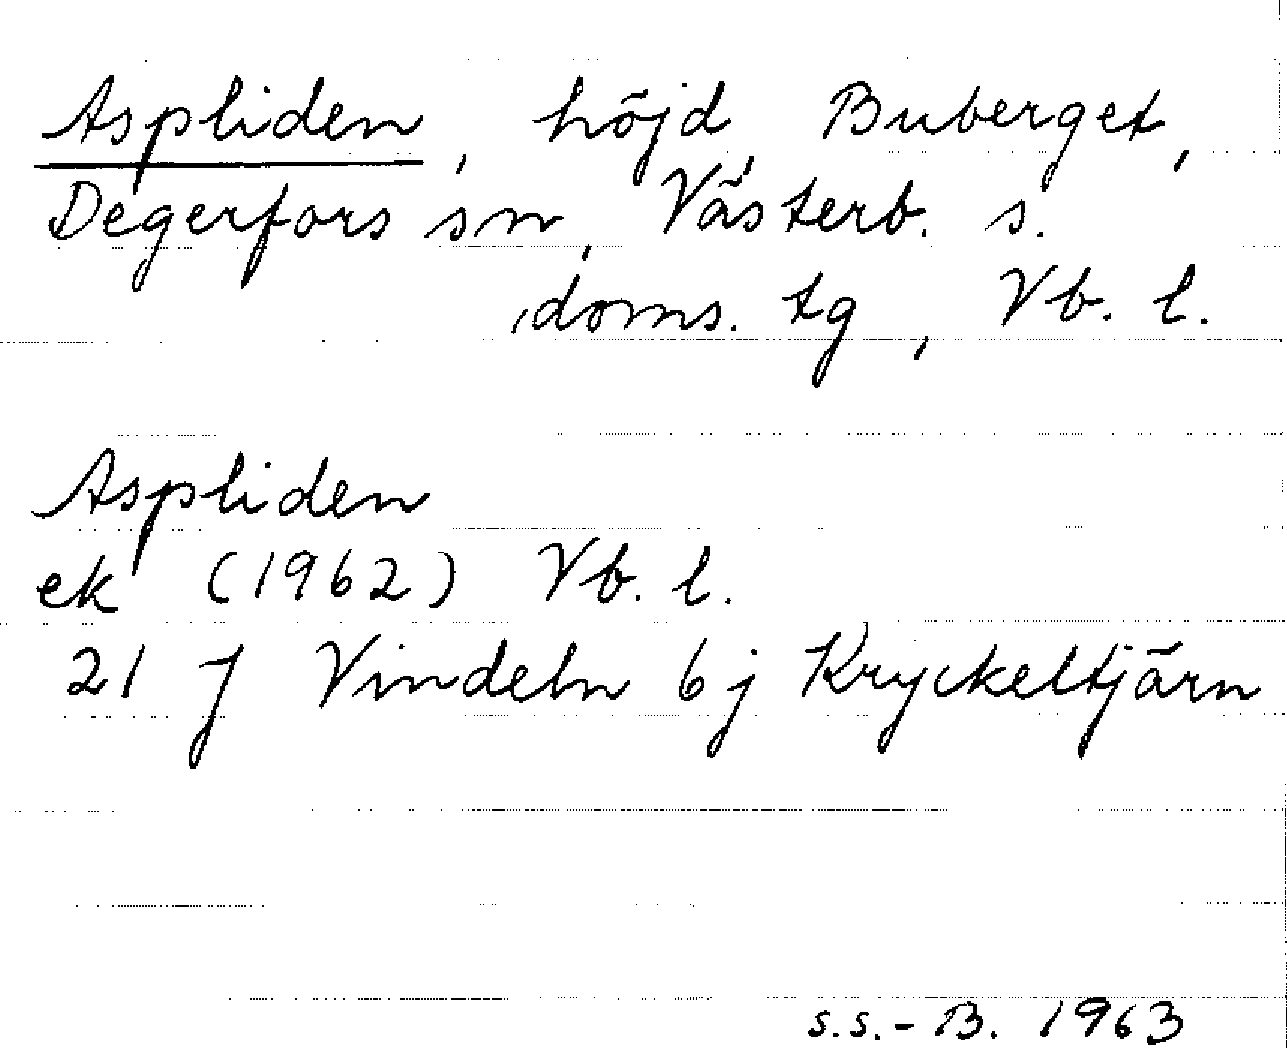 Aspliden, höjd, Buberget,
Degerfors sn, Västerb. s.
doms. tg, Vb. l.
Aspliden
ek (1962) Vb. l.
21 J Vindeln 6j Kryckeltjärn
s.s.-B. 1963